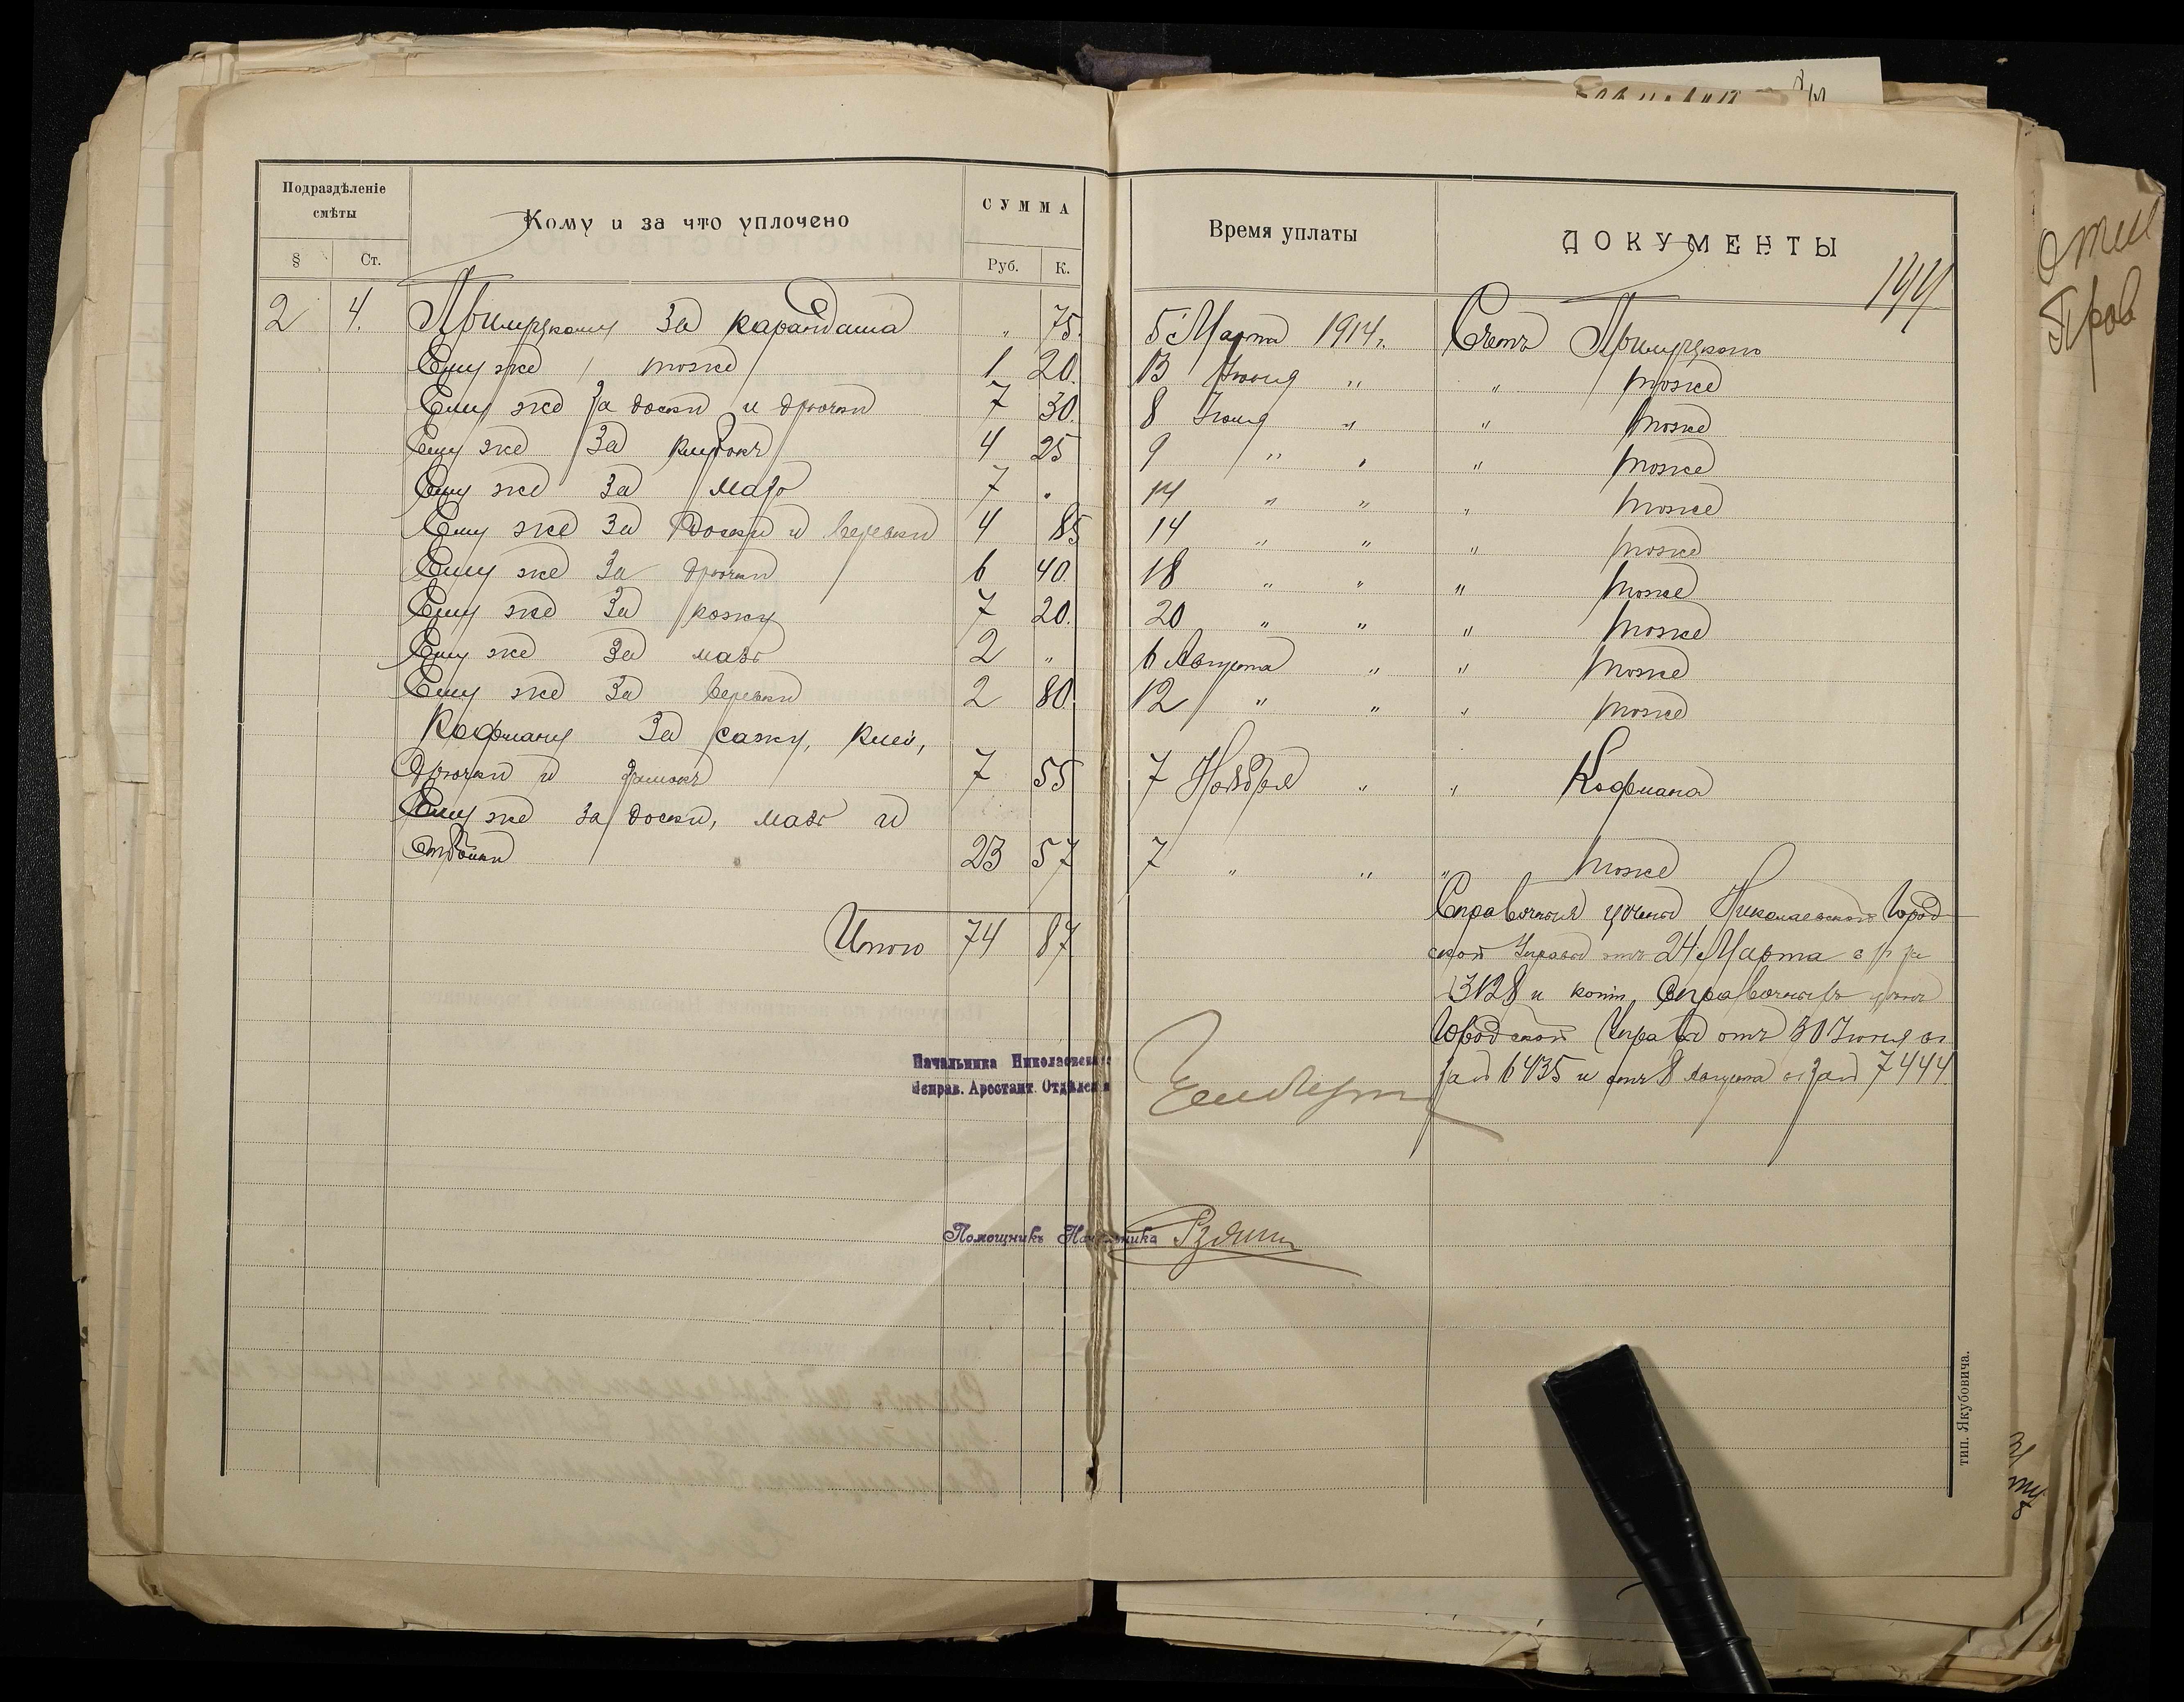 Подраздѣленіе
смѣты
§ Ст.
Кому и за что уплочено
СУММА
Руб. К.
Время уплаты
ДОКУМЕНТЫ
144
2 4. за карандаша " 75. 5 Марта 1914 г. Счетъ
Ему же тоже 1 20. 13 " " тоже
Ему же за доски и дрючки 7 30. 8 Іюля " " тоже
Ему же за 4 25 9 " " " тоже
Ему же за мазь 7 " 14 " " " тоже
Ему же за доски и веревки 4 85 14 " " " тоже
Ему же за дрючки 6 40. 18 " " " тоже
Ему же за кожу 7 20. 20 " " " тоже
Ему же за мазь 2 " 6 Августа " " тоже
Ему же за веревки 2 80. 12 " " " тоже
Кофману за сажу, клей,
дрючки и замокъ 7 55 7 Ноября " " Кофмана
Ему же за доски, мазь и
23 57 7 " " " тоже
Итого 74 87
Николаевской Город-
ской Управы отъ 24 Марта
3128 и
Городской Управы отъ 30 Іюня
за № 6435 и отъ 8 Августа за № 7444
Начальника Николаевскаго
Исправ. Арестант. Отдѣленія
Помощникъ Начальника
тип. Якубовича.